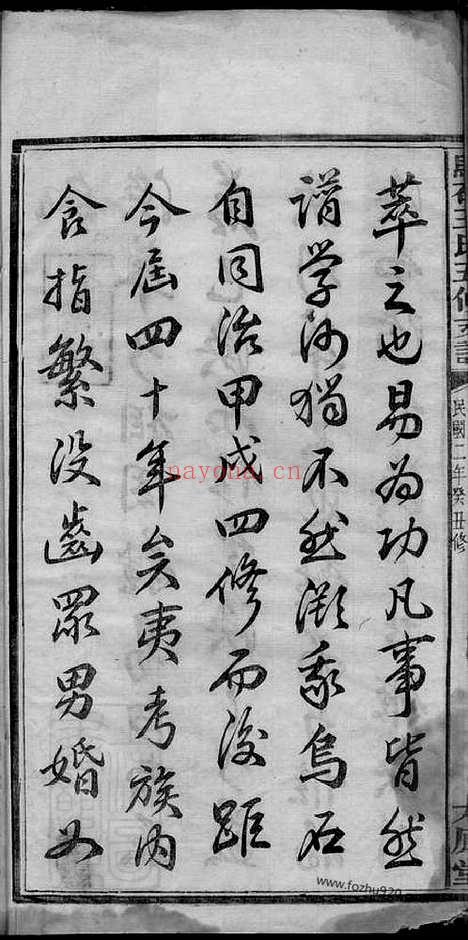 萃之也易為功凡事皆然
譜学何獨不然溯我烏石
自同治甲戌四修而後距
今屆四十年矣夷考族內
食指繁沒齒眾男婚女
民國二年癸丑修
nayona.cn
www.fozhu920